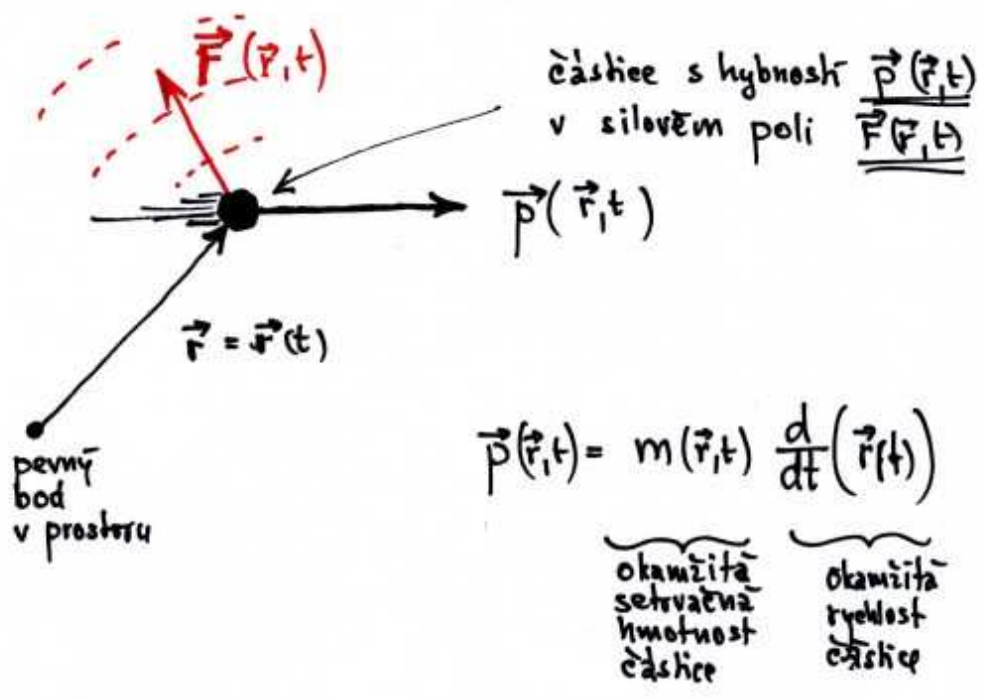 F⃗(r⃗,t)
částice s hybností p⃗(r⃗,t)
v silovém poli F⃗(r⃗,t)
p⃗(r⃗,t)
r⃗ = r⃗(t)
pevný
bod
v prostoru
p⃗(r⃗,t) = m(r⃗,t) d/dt (r⃗(t))
okamžitá
setrvačná
hmotnost
částice
okamžitá
rychlost
částice